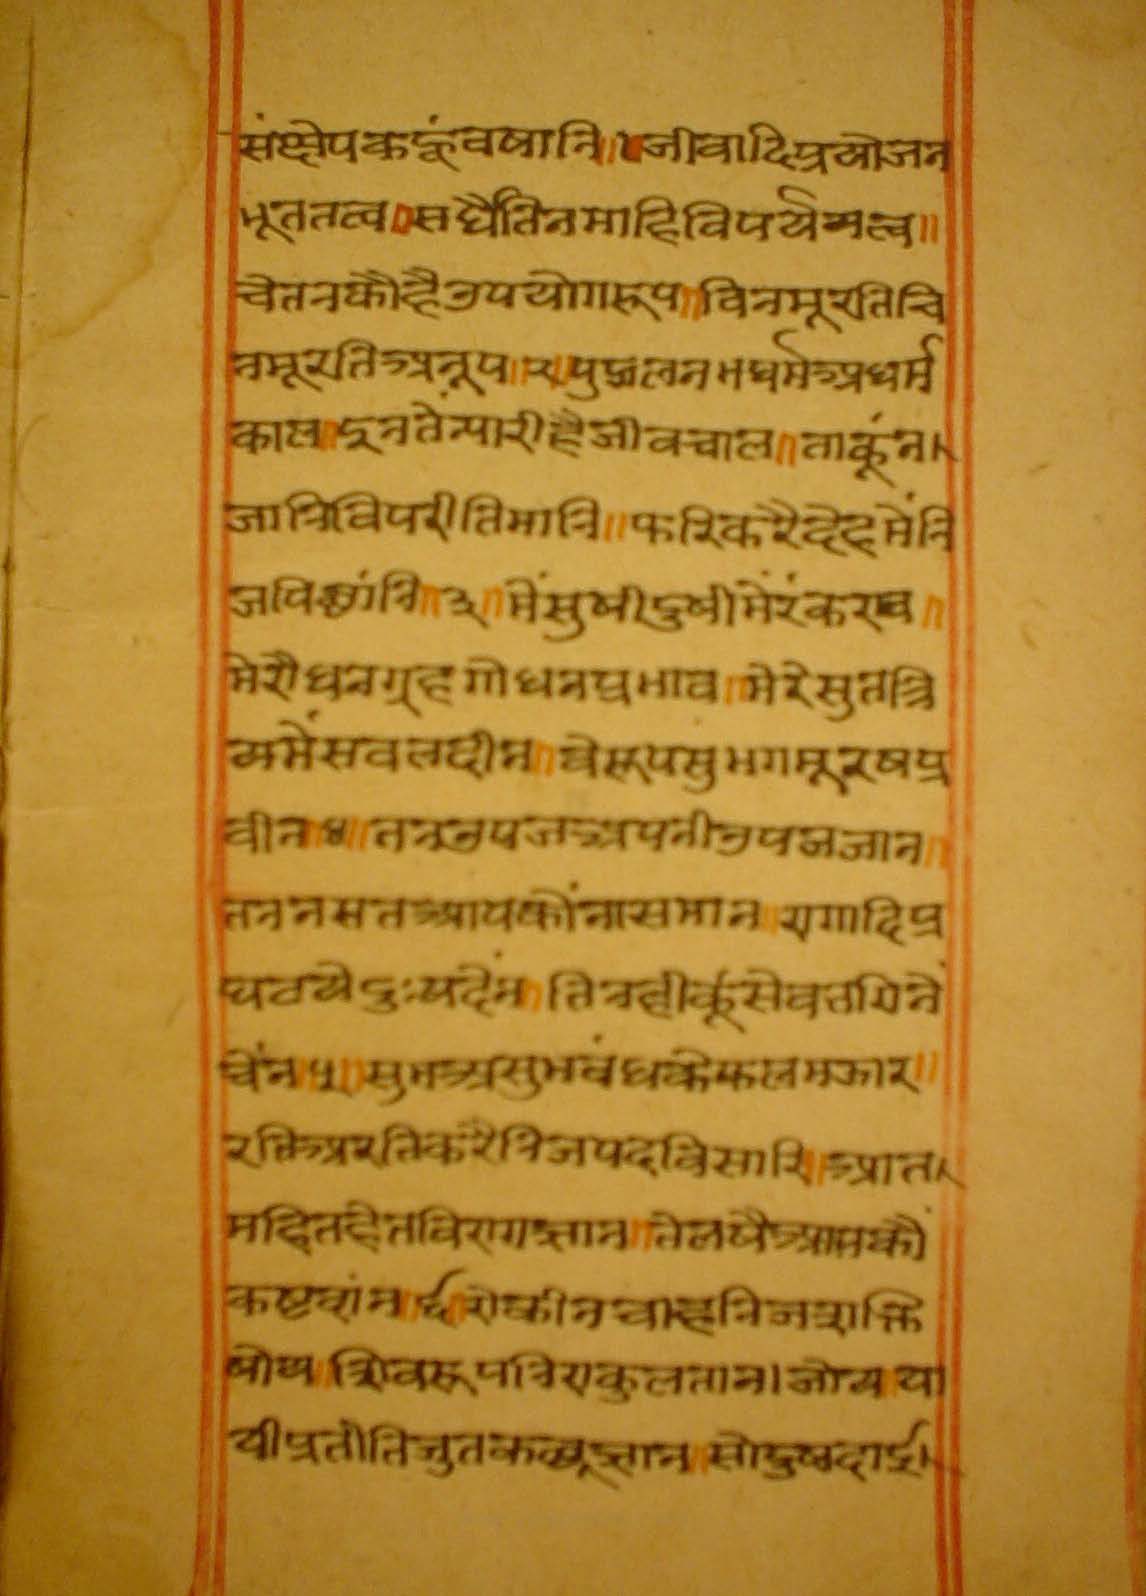 संक्षेप कहूं वषानि ॥१ जीवादि प्रयोजन
भूत तत्व ॥ सर्धैं तिन माहि विपर्यय सत्व ॥
चेतन कौ है उपयोग रूप ॥ विनमूरति चि
नमूरति अनूप ॥२॥ पुद्गल नभ धर्म अधर्म
काल ॥ इनतें न्यारी है जीव चाल ॥ ताकूं न।
जानि विपरीति मानि ॥ करि करै देह में नि
ज पिछांनि ॥३॥ में सुषी दुषी में रंक राव ॥
मेरौ धन गृह गोधन प्रभाव ॥ मेरे सुत त्रि
य में सवल दीन ॥ वेरूप सुभग मूरष प्र
वीन ॥४॥ तन उपजत अपनी उपज जान ॥
तन नसत आपकौं नास मान ॥ रागादि प्र
घट ये दुःष दैंन ॥ तिनही कूं सेवत गिनें
चेंन ॥५॥ सुभ असुभ वंध के फल मझार ॥
रति अरति करै निज पद विसारि ॥ आत।
महित हेत विराग ज्ञान ॥ ते लषै आपकौं
कष्ट दांन ॥६॥ रोकी न चाह निज शक्ति
षोय ॥ शिवरूप निराकुलता न जोय ॥ या
ही प्रतीति जुत कछू ज्ञान ॥ सो दुखदाई।